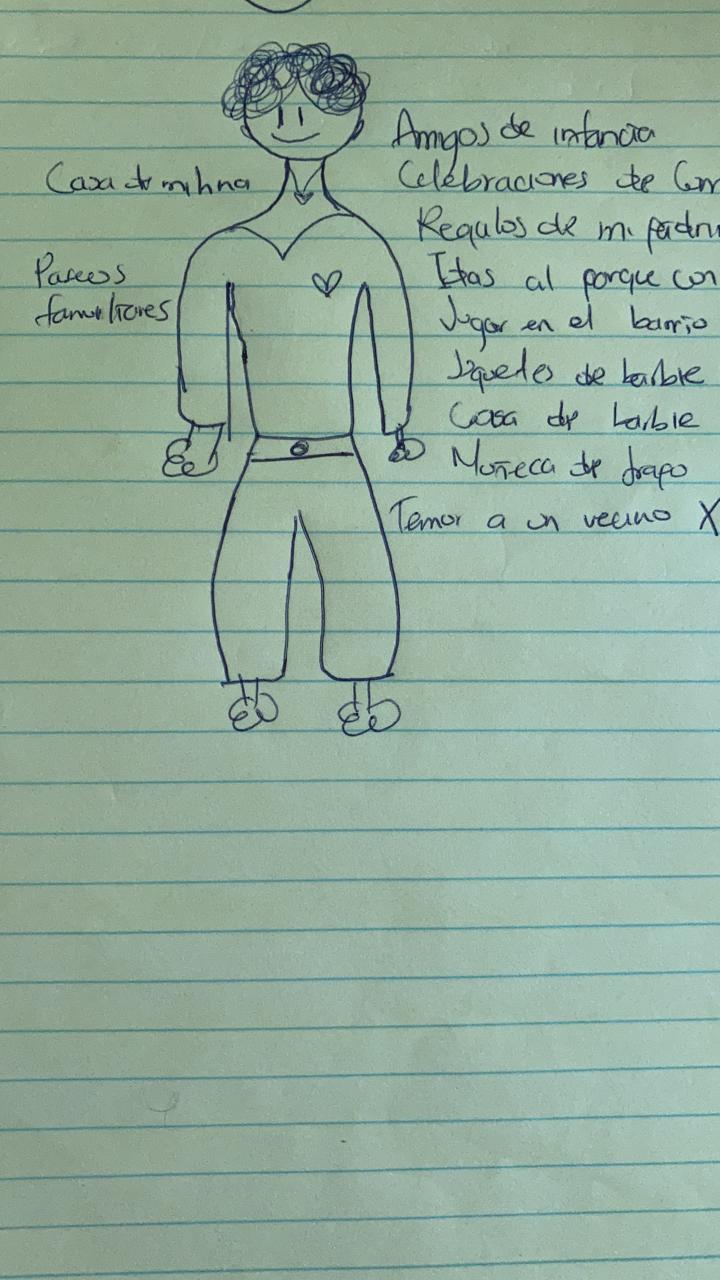 Amigos de infancia
Casa de mi nna
Celebraciones de
Regalos de mi padri
Paseos
familiares
Idas al parque con
Jugar en el barrio
Juguetes de barbie
Casa de barbie
Muñeca de trapo
Temor a un vecino X